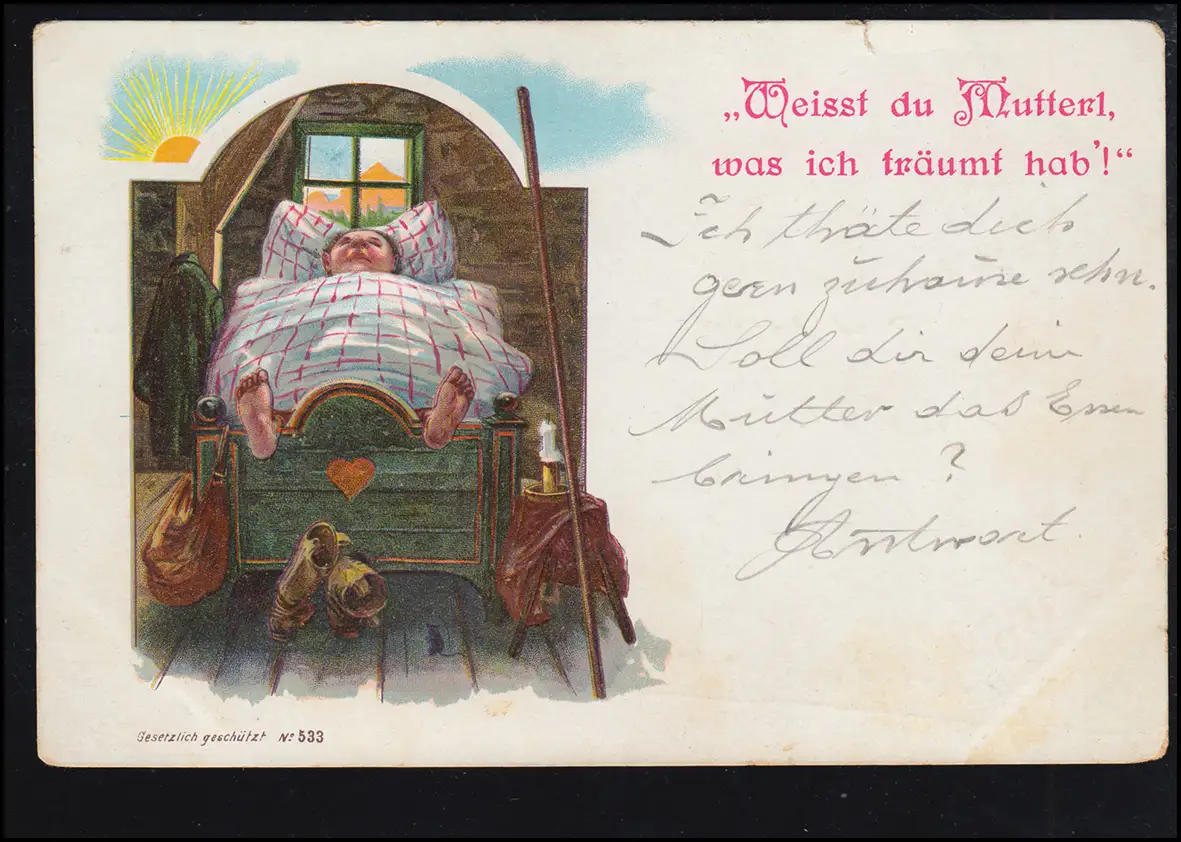 „Weisst du Mutterl,
was ich träumt hab'!“
Ich thäte dich
gern zuhause sehn.
Soll dir deine
Mutter das Essen
bringen?
Antwort.
Gesetzlich geschützt No 533